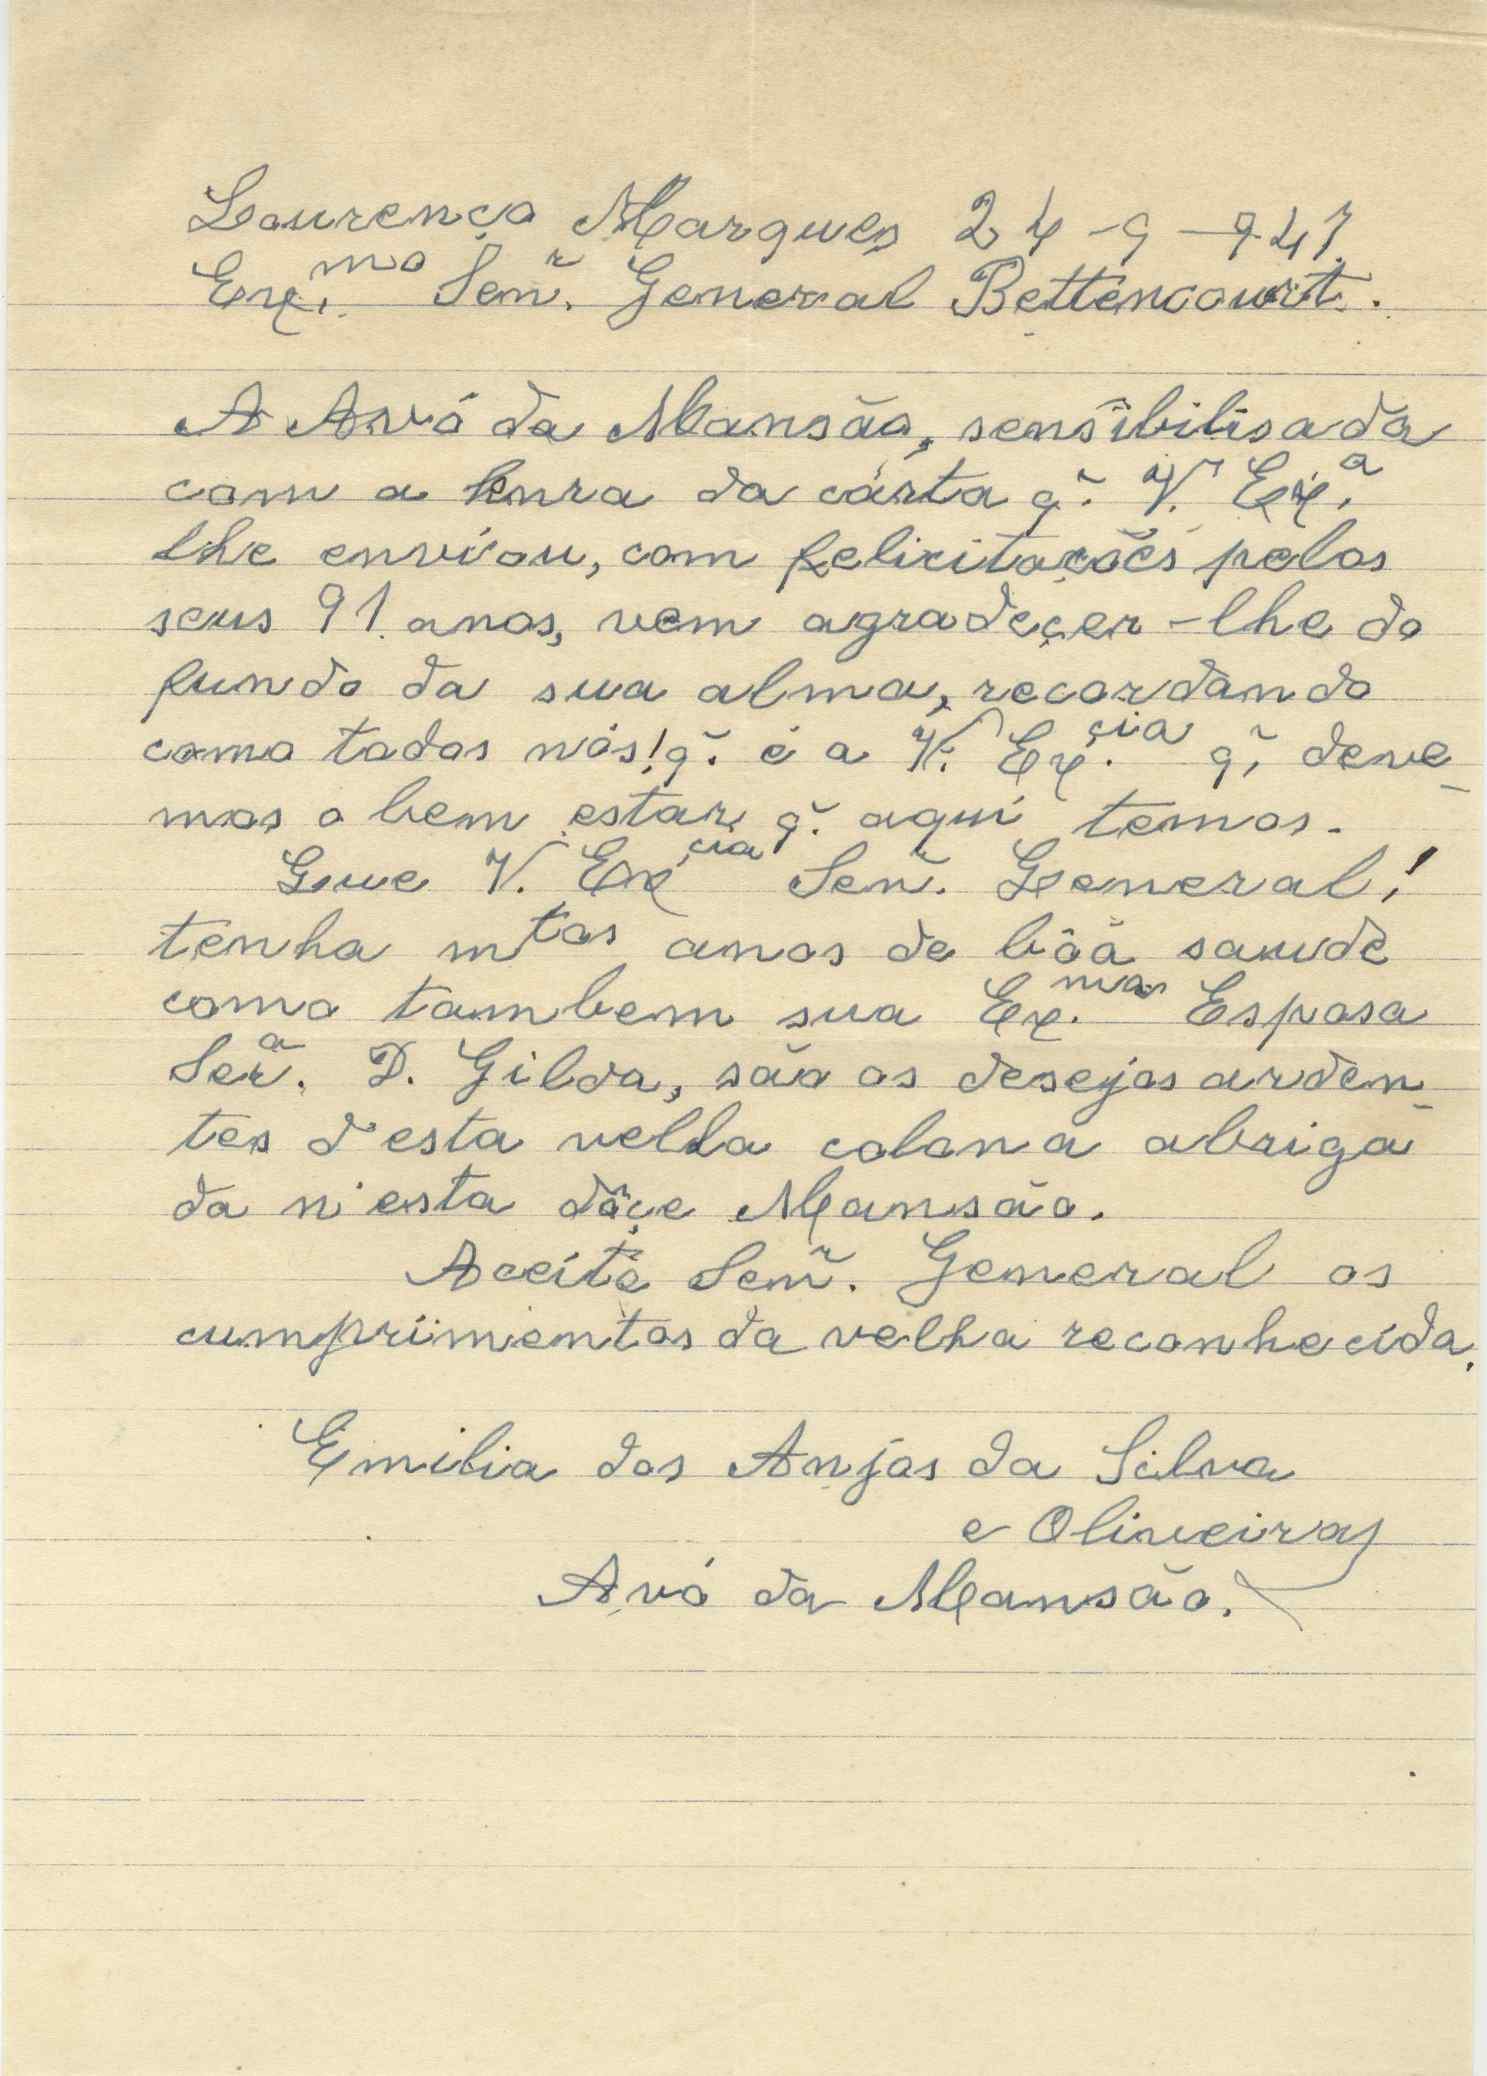 Lourenço Marques 24-9-947
Ex.mo Senr. General Bettencourt.
A Avó da Mansão, sensibilisada
com a honra da cárta q̃. V. Ex.a
lhe enviou, com felicitações pelos
seus 91 anos, vem agradeçer-lhe do
fundo da sua alma, recordando
como todos nós! q̃. é a V. Ex.cia q̃, deve-
mos o bem estar q̃. aqui temos.
Que V. Excia Senr. General!
tenha mtos anos de bôa saude
como tambem sua Ex.ma Esposa
Sera. D. Gilda, são os desejos arden-
tes d'esta velha colona abriga
da n'esta dôçe Mansão.
Aceite Senr. General os
cumprimentos da velha reconhecida.
Emilia dos Anjos da Silva
e Oliveira
Avó da Mansão.